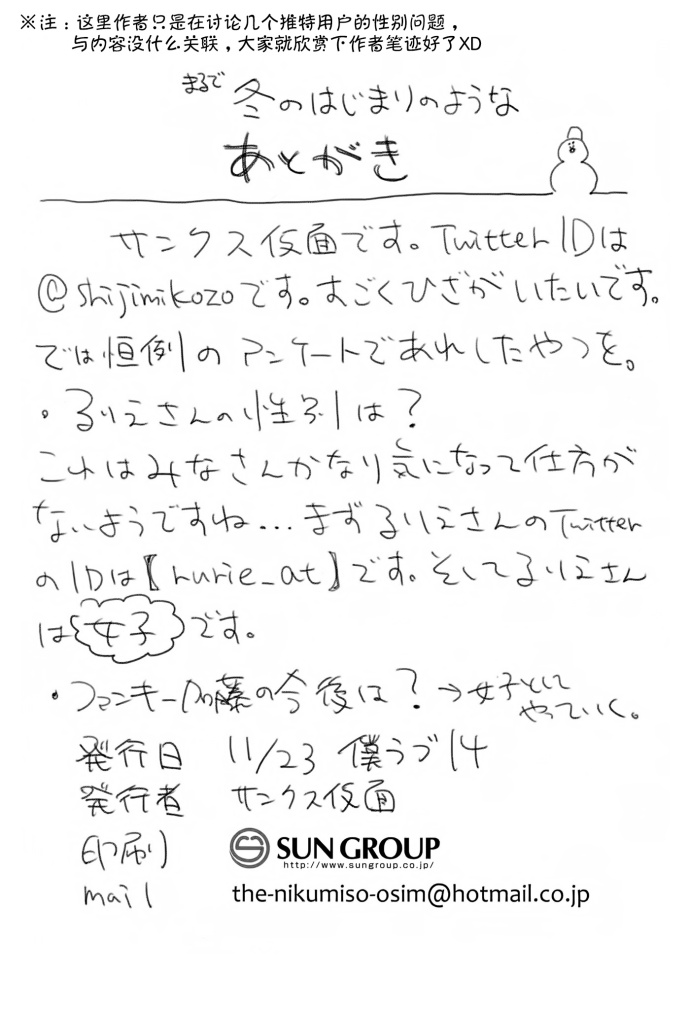 ※注：这里作者只是在讨论几个推特用户的性别问题，
与内容没什么关联，大家就欣赏下作者笔迹好了XD
まるで 冬のはじまりのような
あとがき
サンクス仮面です。Twitter IDは
@shijimikozoです。すごくひざがいたいです。
では恒例のアンケートであれしたやつを。
・るりえさんの性別は？
これはみなさんかなり気になって仕方が
ないようですね…まずるりえさんのTwitter
のIDは【rurie_at】です。そしてるりえさん
は女子です。
・ファンキー加藤の今後は？→女子として
やっていく。
発行日 11/23 僕ラブ14
発行者 サンクス仮面
印刷 SUN GROUP
http://www.sungroup.co.jp/
mail the-nikumiso-osim@hotmail.co.jp